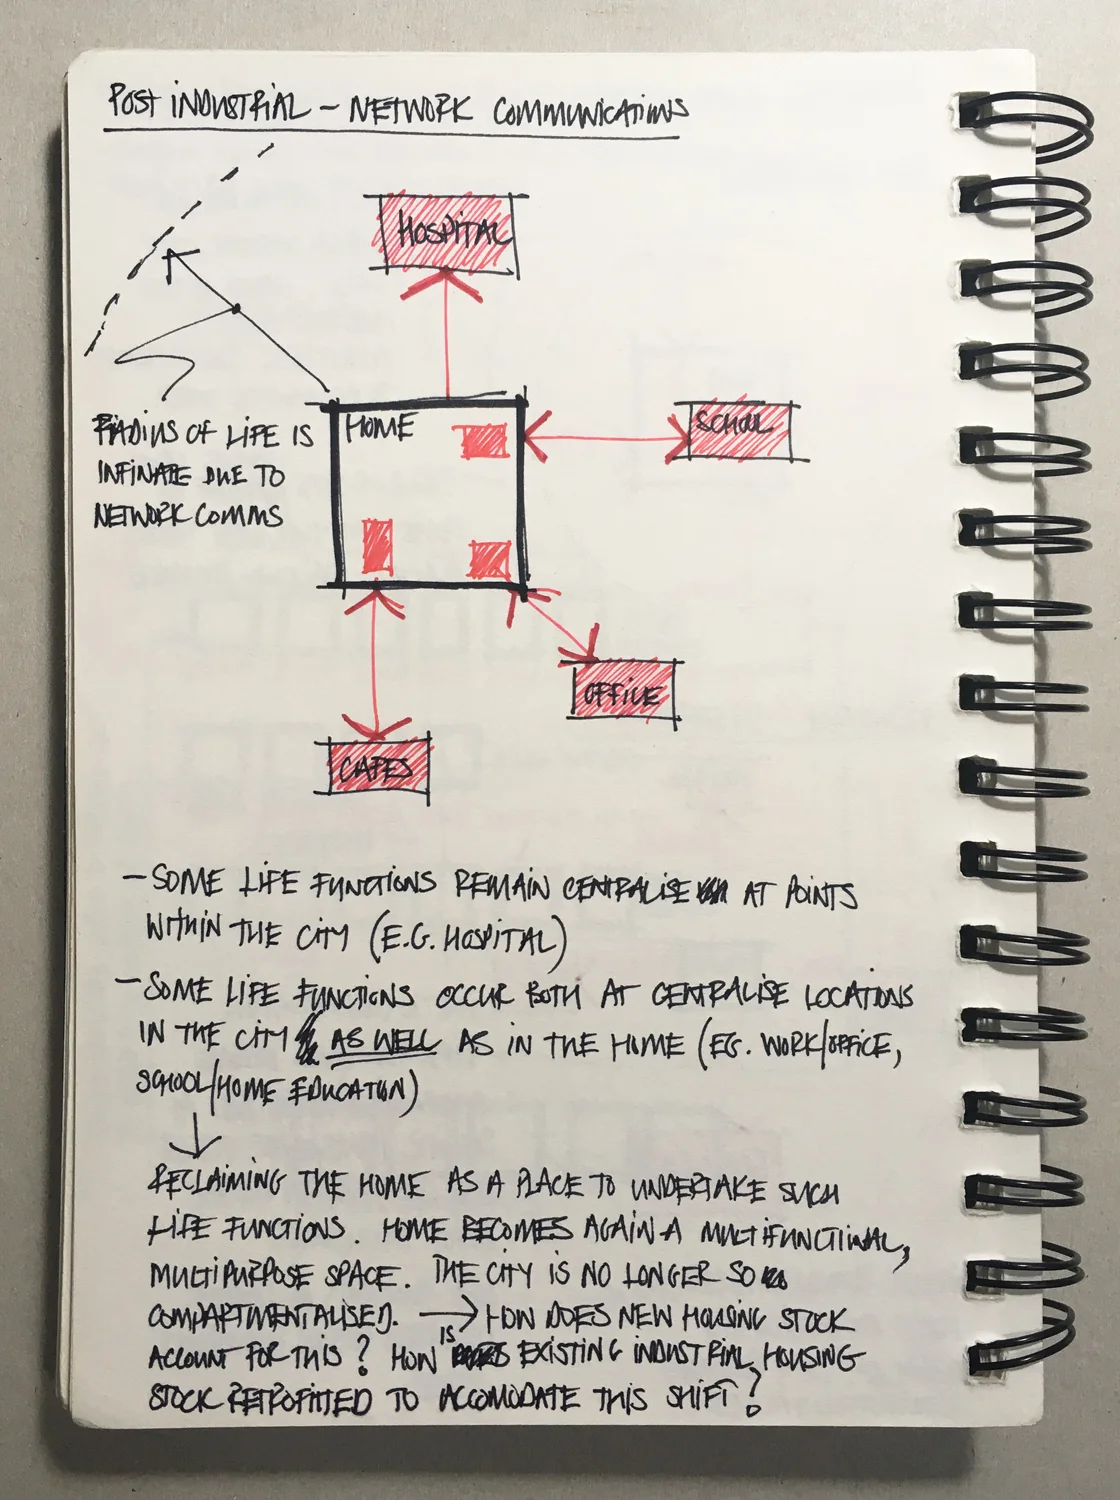 POST INDUSTRIAL – NETWORK COMMUNICATIONS
HOSPITAL
HOME
SCHOOL
RADIUS OF LIFE IS
INFINATE DUE TO
NETWORK COMMS
OFFICE
CAFES
– SOME LIFE FUNCTIONS REMAIN CENTRALISE AT POINTS
WITHIN THE CITY (E.G. HOSPITAL)
– SOME LIFE FUNCTIONS OCCUR BOTH AT CENTRALISE LOCATIONS
IN THE CITY AS WELL AS IN THE HOME (EG. WORK/OFFICE,
SCHOOL/HOME EDUCATION)
↓
RECLAIMING THE HOME AS A PLACE TO UNDERTAKE SUCH
LIFE FUNCTIONS. HOME BECOMES AGAIN A MULTIFUNCTIONAL,
MULTIPURPOSE SPACE. THE CITY IS NO LONGER SO
COMPARTMENTALISED. → HOW DOES NEW HOUSING STOCK
ACCOUNT FOR THIS? HOW IS EXISTING INDUSTRIAL HOUSING
STOCK RETROFITTED TO ACCOMODATE THIS SHIFT?